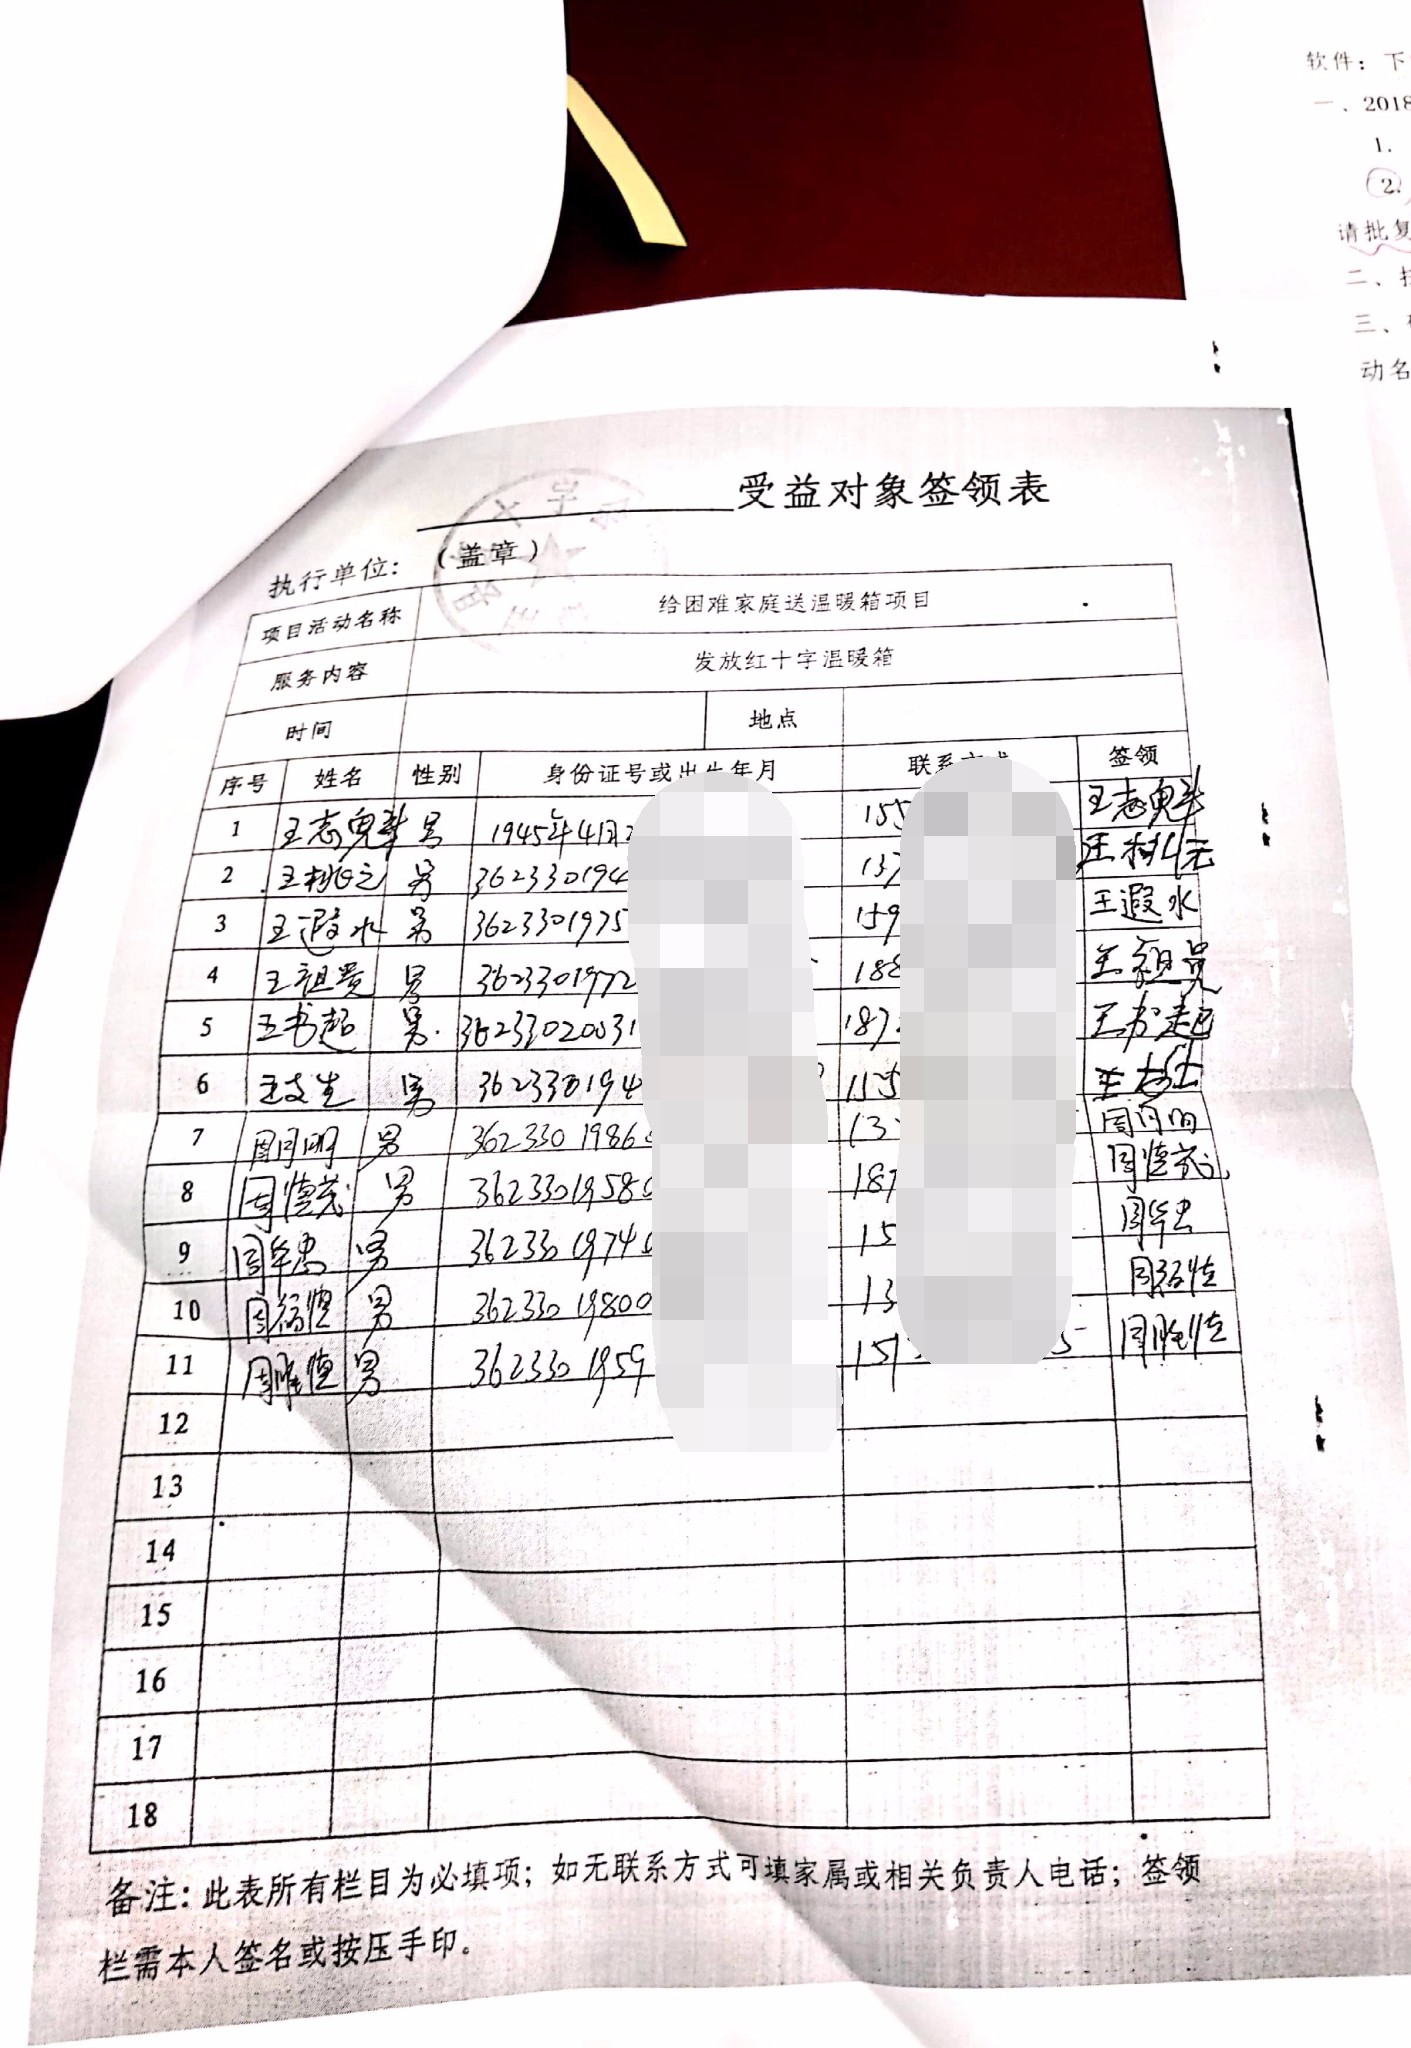 软件：下
一、2018
1.
2.
请批复
二、
三、
动名
受益对象签领表
执行单位：（盖章）
项目活动名称 给困难家庭送温暖箱项目
服务内容 发放红十字温暖箱
时间 地点
序号 姓名 性别 身份证号或出生年月 联系方式 签领
1 王志 男 1945年4月 155 王志
2 王 男 362330194 137 王
3 王遐水 男 3623301975 159 王遐水
4 王祖贵 男 3623301972 188 王祖贵
5 王书超 男 36233020031 187 王书超
6 王 男 362330194 155 王
7 周月明 男 3623301986 13 周月明
8 周德茂 男 3623301958 187 周德茂
9 周华忠 男 3623301974 15 周华忠
10 周德 男 36233019800 13 周德
11 周胜德 男 3623301959 151 5 周胜德
12
13
14
15
16
17
18
备注：此表所有栏目为必填项；如无联系方式可填家属或相关负责人电话；签领
栏需本人签名或按压手印。